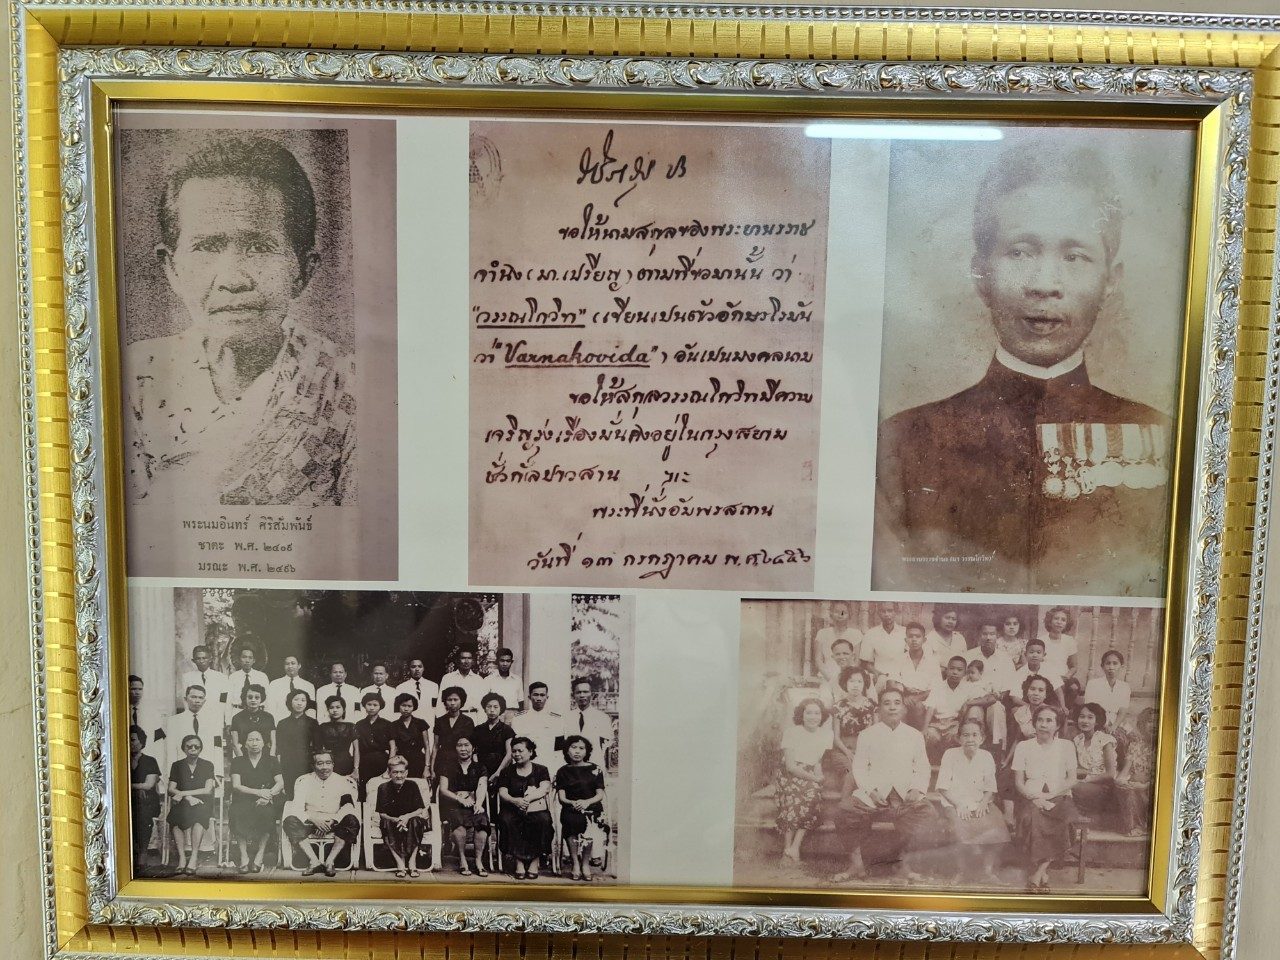 พระนมอินทร์ ศิริสัมพันธ์
ชาตะ พ.ศ. ๒๔๐๙
มรณะ พ.ศ. ๒๔๙๖
ขอให้นามสกุลของพระยานรราช
จำนิง (มา.เปรียญ) ตามที่ขอมานั้น ว่า
"วรรณโกวิท" (เขียนเปนตัวอักษรโรมัน
ว่า "Varnakovida") อันเปนมงคลนาม
ขอให้สกุลวรรณโกวิทมีความ
เจริญรุ่งเรืองมั่นคงอยู่ในกรุงสยาม
ชั่วกัลปาวสาน
พระที่นั่งอัมพรสถาน
วันที่ ๑๓ กรกฎาคม พ.ศ.๒๔๕๖